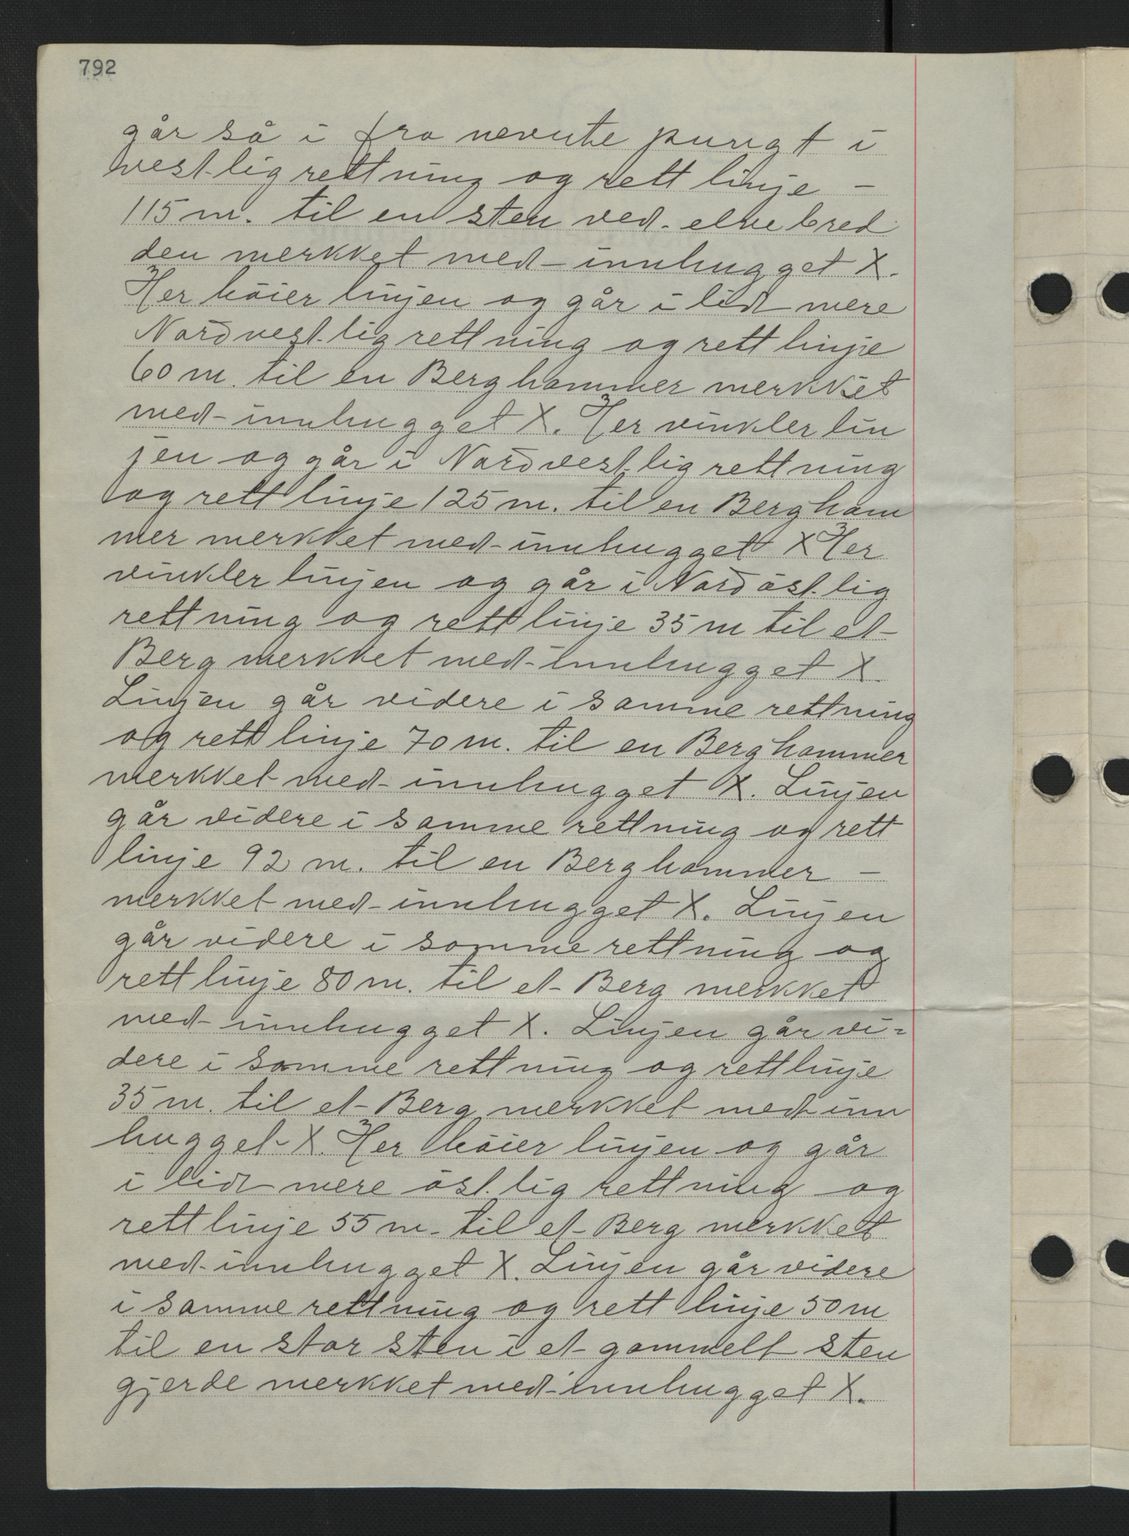 792
går så i fra nevnte pungt i
vestlig rettning og rett linje –
115 m. til en sten ved elvebred
den merkket med innhugget X.
Her böier linjen og går i lidt mere
Nordvestlig rettning og rett linje
60 m. til en Berghammer merkket
med innhugget X. Her vinkler lin
jen og går i Nordvestlig rettning
og rett linje 125 m. til en Bergham
mer merkket med innhugget X Her
vinkler linjen og går i Nordöstlig
rettning og rett linje 35 m til et
Berg merkket med innhugget X.
Linjen går videre i samme rettning
og rett linje 70 m. til en Berghammer
merkket med innhugget X. Linjen
går videre i samme rettning og rett
linje 92 m. til en Berghammer –
merkket med innhugget X. Linjen
går videre i samme rettning og
rett linje 80 m. til et Berg merkket
med innhugget X. Linjen går vi=
dere i samme rettning og rett linje
35 m. til et Berg merkket med inn
hugget X. Her böier linjen og går
i lidt mere östlig rettning og
rett linje 55 m. til et Berg merkket
med innhugget X. Linjen går videre
i samme rettning og rett linje 50 m
til en stor sten i et gammelt sten
gjerde merkket med innhugget X.